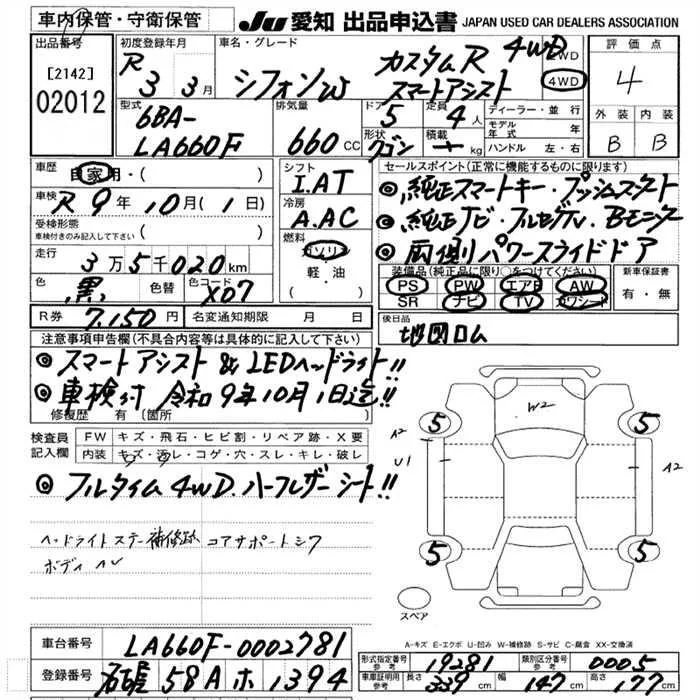 車内保管・守衛保管
JU 愛知 出品申込書 JAPAN USED CAR DEALERS ASSOCIATION
出品番号
[2142]
02012
初度登録年月
R 3 3月
車名・グレード
シフォンW カスタムR 4WD
スマートアシスト
2WD
4WD
評価点
4
外装 内装
B B
型式
6BA-
LA660F
排気量
660 CC
ドア
5
形状
ワゴン
定員
4人
積載
kg
ディーラー・並行
モデル年式 年
ハンドル 左・右
車歴
自家用・( )
車検
R 9年 10月(1日)
受検形態
車検付きのみ記入して下さい ( )
走行
3万5千020km
色
黒
色替
色コード
X07
R券 7,150円
名変通知期限 月 日
シフト
I.AT
冷房
A.AC
燃料
ガソリン
軽・油
( )
セールスポイント(正常に機能するものに限ります)
◎純正スマートキー・プッシュスタート
◎純正ナビ・フルセグTV・Bモニター
◎両側パワースライドドア
装備品(純正品に限り○をつけてください)
PS PW エアB AW
SR ナビ TV カワシート
新車保証書
有・無
後日品
地図ロム
注意事項申告欄(不具合内容等は具体的に記入して下さい)
◎スマートアシスト & LEDヘッドライト!!
◎車検付 令和9年10月1日迄!!
修復歴 有(箇所 )
検査員記入欄
FW キズ・飛石・ヒビ割・リペア跡・X要
内装 キズ・汚レ・コゲ・穴・スレ・キレ・破レ
◎フルタイム4WD.ハーフレザーシート!!
ヘッドライトステー補修跡 コアサポートシワ
ボディ
W2
A2
U1
A2
5
5
5
5
スペア
A-キズ E-エクボ U-凹み W-補修跡 S-サビ C-腐食 XX-交換済
車台番号 LA660F-0002781
登録番号 58A ホ 1394
形式指定番号 参考 19281
類別区分番号 参考 0005
車庫証明用 参考 長さ 339cm 幅 147cm 高さ 177cm